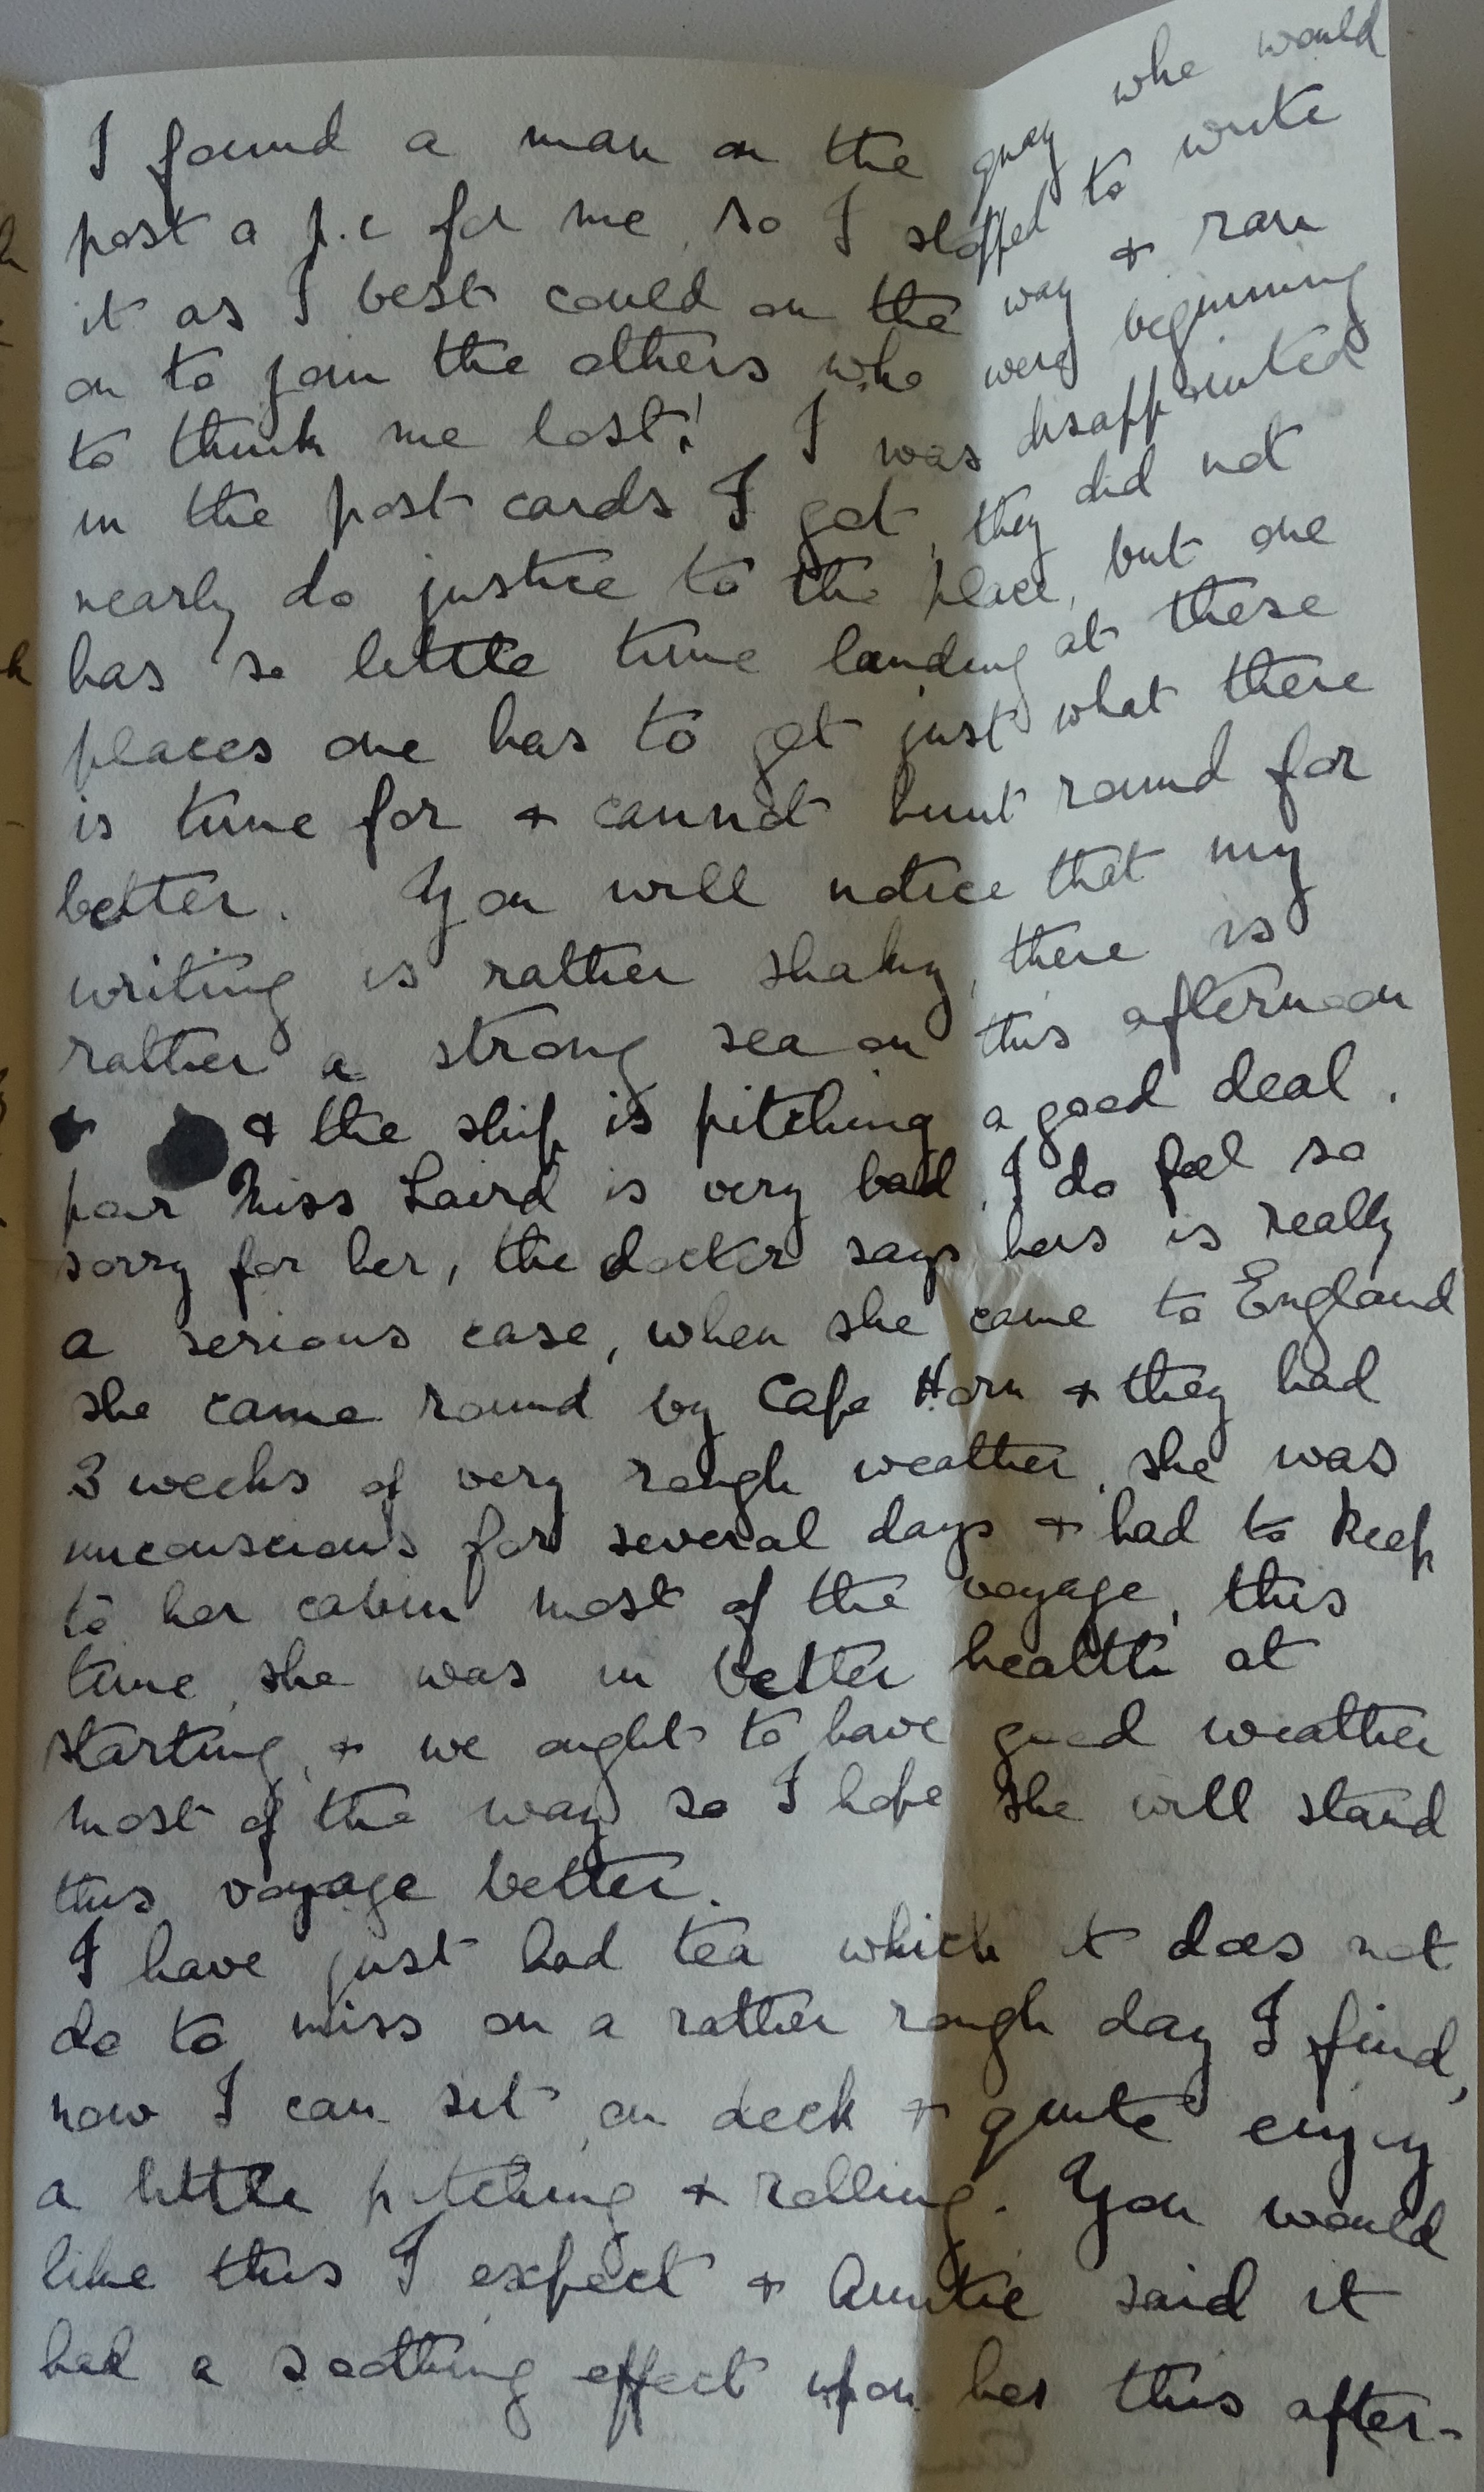 I found a man on the quay who would
post a p.c for me, so I stopped to write
it as I best could on the way & ran
on to join the others who were beginning
to think me lost! I was disappointed
in the post cards I got, they did not
nearly do justice to the place, but one
has so little time landing at these
places one has to get just what there
is time for & cannot hunt round for
better. You will notice that my
writing is rather shaky, there is
rather a strong sea on this afternoon
& the ship is pitching a good deal.
poor Miss Laird is very bad, I do feel so
sorry for her, the doctor says hers is really
a serious case, when she came to England
she came round by Cape Horn & they had
3 weeks of very rough weather, she was
unconscious for several days & had to keep
to her cabin most of the voyage, this
time she was in better health at
starting, & we ought to have good weather
most of the way so I hope she will stand
this voyage better.
I have just had tea which it does not
do to miss on a rather rough day I find,
now I can sit on deck & quite enjoy
a little pitching & rolling. You would
like this I expect & Auntie said it
had a soothing effect upon her this after-